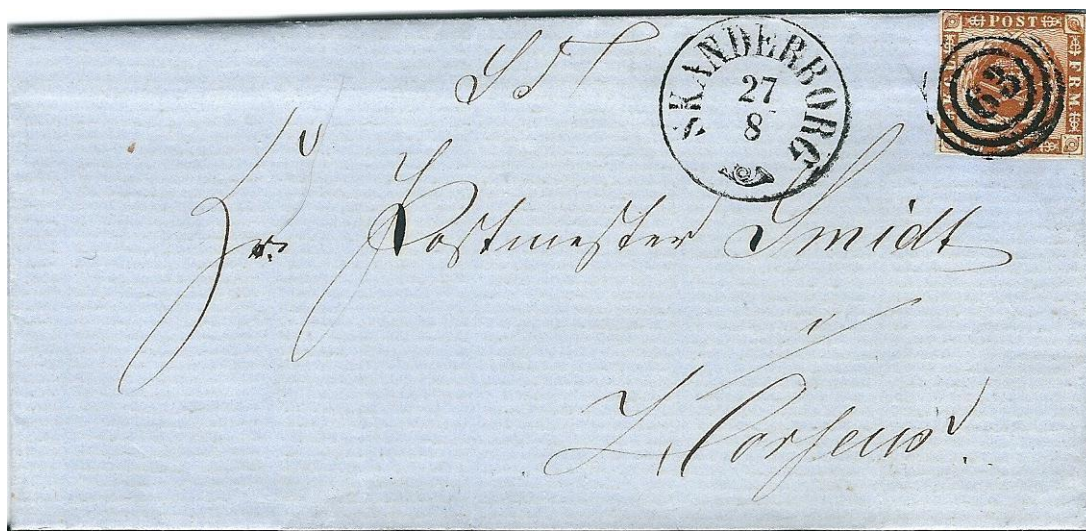 S T
SKANDERBORG
27
8
POST
FRM
63
Hr. Postmester Smidt
i
Horsens